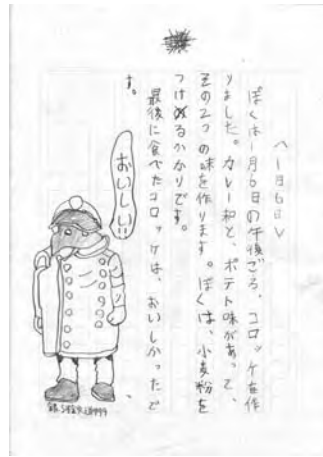 〈一月6日〉
ぼくは一月6日の午後ごろ、コロッケを作
りました。カレー味と、ポテト味があって、
その2つの味を作ります。ぼくは、小麦粉を
つけるかかりです。
最後に食べたコロッケは、おいしかったで
す。
おいしい!!